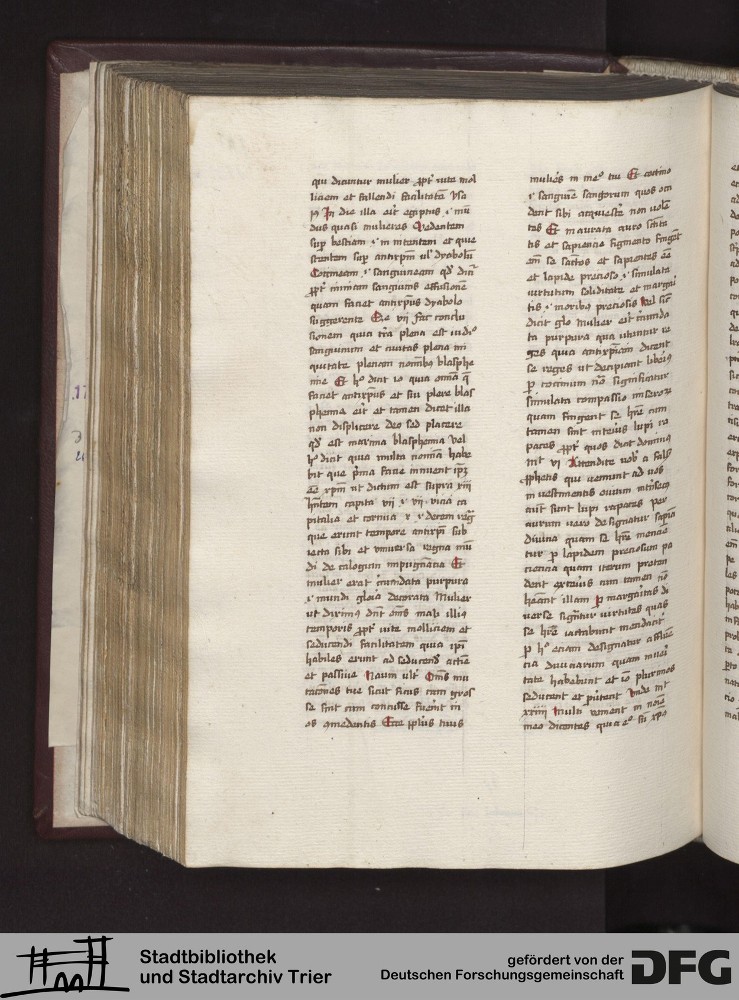 qui dicuntur mulier ꝓpt vite mol
liciem et fallendi facilitatē ysa
In die illa erit egiptus
dus quasi mulieres Sedentem
suꝑ bestiam
stentem suꝑ antixpm ul dyabolū
Coccineam sanguineam qd
ꝓpt nimiam sanguinis effusionē
quam faciet antixpus dyabolo
suggerente Eze vij fac conclu
sionem quia terra plena est iudi
sanguinum et ciuitas plena ini
quitate plenam nominibꝰ blasphe
mie Et hoc dicit
faciet antixpus et sui plere blas
phemia erit et tamen dicet illa
non displicere deo sed placere
qd est maxima blasphemia vel
hoc dicit quia multa nomina habe
bit que prima facie innuent
ēe xpm ut dictum est supra xiij
hntem capita vij vij vicia ca
pitalia et cornua x decem reg
que erunt tempore antixpi sub
iecta sibi et vniuersa regna mū
di decalogum impugnācia Et
mulier erat circumdata purpura
mundi gloria decorata Mulier
ut diximꝰ dicit omēs mali illiꝰ
temporis ꝓpt vite molliciem et
seducendi facilitatem quia ipi
habiles erunt ad seducendū actiue
et passiue Naum vlt Omēs mu
niciones tue sicut ficus cum gros
sis suis si concusse fuerint
os comedentis Ecce ppls tuus
mulieres in medio tui Et coccino
sanguine sanctorum quos occi
dent sibi acquiescere non volen
tes Et inaurata auro
tis et sapiencie figmento fingent
enim se sanctos et sapientes ēe
et lapide precioso simulata
virtutum soliditate et margari
tis moribꝰ preciosis Vel
dicit glo Mulier erit circumda
ta purpura qua vtuntur re
ges quia antixpm dicent
se reges ut decipiant liberius
ꝑ coccinum significatur
simulata compassio miserorum
quam fingent se hre cum
tamen sint interius lupi ra
paces ꝓpt quos dicit dominus
mt vij Attendite vobis a falsis
ꝓphetis qui veniunt ad vos
in vestimentis ouium intrinsecus
aut sunt lupi rapaces Per
aurum vero designatur sapiencia
diuina quam se hre mencien
tur ꝑ lapidem preciosum pa
ciencia quam iterum preten
dent exterius cum tamen non
habeant illam ꝑ margaritas di
uerse signantur virtutes quas
se hre iactabunt mendaciter
ꝑ hoc eciam designatur affluen
cia diuiciarum quam
tate habebunt et io plurimos
seducent et Vnde mt
xxiiij Multi venient in noīe
meo dicentes quia ego sum xps
Stadtbibliothek
und Stadtarchiv Trier
gefördert von der
Deutschen Forschungsgemeinschaft
DFG